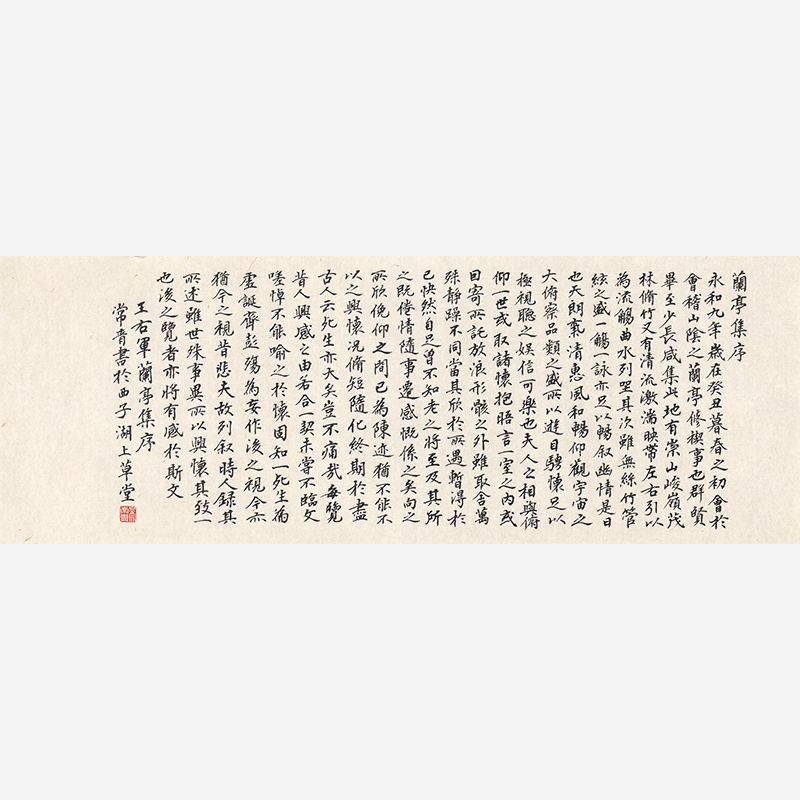 蘭亭集序
永和九年歲在癸丑暮春之初會於
會稽山陰之蘭亭修禊事也群賢
畢至少長咸集此地有崇山峻嶺茂
林脩竹又有清流激湍映帶左右引以
為流觴曲水列坐其次雖無絲竹管
絃之盛一觴一詠亦足以暢叙幽情是日
也天朗氣清惠風和暢仰觀宇宙之
大俯察品類之盛所以遊目騁懷足以
極視聽之娱信可樂也夫人之相與俯
仰一世或取諸懷抱晤言一室之內或
因寄所託放浪形骸之外雖取舍萬
殊靜躁不同當其欣於所遇暫得於
己怏然自足曾不知老之將至及其所
之既倦情隨事遷感慨係之矣向之
所欣俛仰之間已為陳迹猶不能不
以之興懷况脩短隨化終期於盡
古人云死生亦大矣豈不痛哉每覽
昔人興感之由若合一契未嘗不臨文
嗟悼不能喻之於懷固知一死生為
虛誕齊彭殤為妄作後之視今亦
猶今之視昔悲夫故列叙時人録其
所述雖世殊事異所以興懷其致一
也後之覽者亦將有感於斯文
王右軍蘭亭集序
常青書於西子湖上草堂